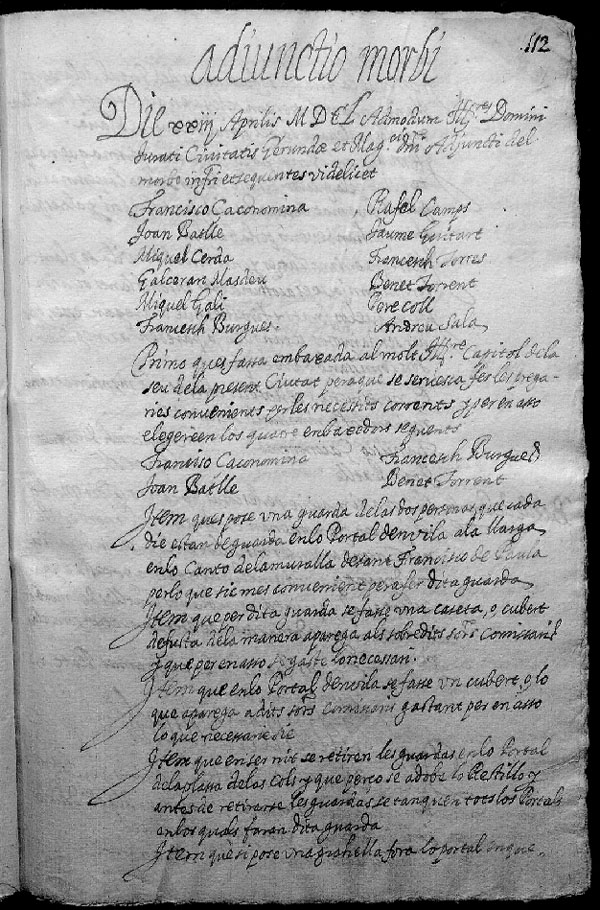 112
adiunctio morbi
Die xxiij Aprilis MDCL Admodum Illres Domini
Jurati Civitatis Gerundæ et Magcis dñi Adjuncti del
morbo infri etsequentes videlicet
Francisco Caconomina Rafel Camps
Joan Batlle Jaume Guitart
Miquel Cerda Francesch Torres
Galceran Masdeu Benet Torrent
Miquel Gali Pere coll
Francesch Burgues. Andreu Sala
Primo ques fassa embaxada al molt Illre Capitol dela
seu dela present Ciutat peraque se servesca fer les prega-
ries convenients per les necessits corrents y per en asso
elegeren los quatre embaxedors seguents
Francisco Caconomina Francesch Burgues
Joan Batlle Benet Torrent
Jtem ques pose una guarda delas dos personas que cada
die estan de guarda enlo Portal denvila ala llarga
enlo Canto dela muralla devant Francisco de Paula
perlo que sie mes convenient pera fer dita guarda
Jtem que per dita guarda se fasse una caseta, o cubert
de fusta dela manera aparega als sobredits sors Comissaris
y que per en asso se gaste lo necessari.
Jtem que enlo Portal denvila se fasse un cubert, o lo
que aparega a dits sors comissaris gastant per en asso
lo que necessari sie
Jtem que en ser nit se retiren les guardas enlo Portal
dela plassa delas Cols y que perço se adobe lo Restillo y
antes de retirarse les guardas, se tanquen tots los Portals
en los quals faran dita guarda
Jtem que si pose una grahella fora lo portal en que